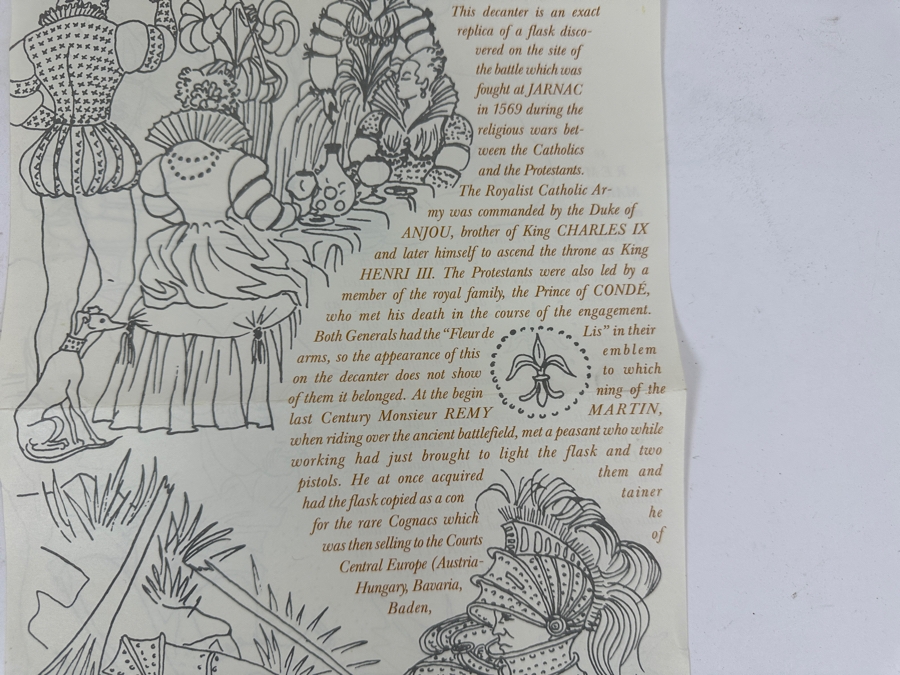 This decanter is an exact
replica of a flask disco-
vered on the site of
the battle which was
fought at JARNAC
in 1569 during the
religious wars bet-
ween the Catholics
and the Protestants.
The Royalist Catholic Ar-
my was commanded by the Duke of
ANJOU, brother of King CHARLES IX
and later himself to ascend the throne as King
HENRI III. The Protestants were also led by a
member of the royal family, the Prince of CONDÉ,
who met his death in the course of the engagement.
Both Generals had the "Fleur de Lis" in their
arms, so the appearance of this emblem
on the decanter does not show to which
of them it belonged. At the begin ning of the
last Century Monsieur REMY MARTIN,
when riding over the ancient battlefield, met a peasant who while
working had just brought to light the flask and two
pistols. He at once acquired them and
had the flask copied as a con tainer
for the rare Cognacs which he
was then selling to the Courts of
Central Europe (Austria-
Hungary, Bavaria,
Baden,